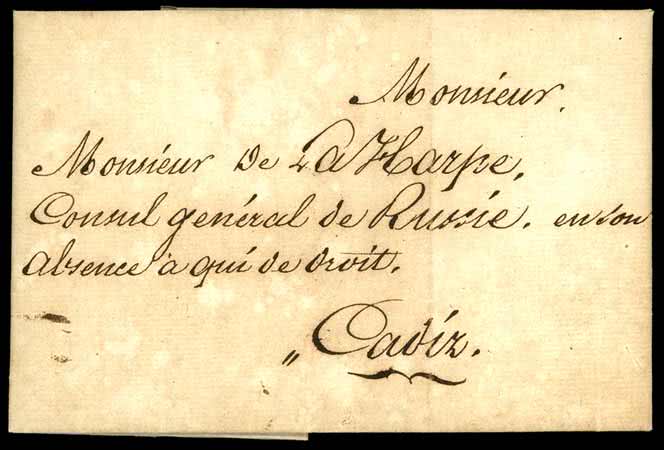 Monsieur.
Monsieur De La Harpe,
Consul général de Russie. en son
absence à qui de droit.
„ Cadiz.